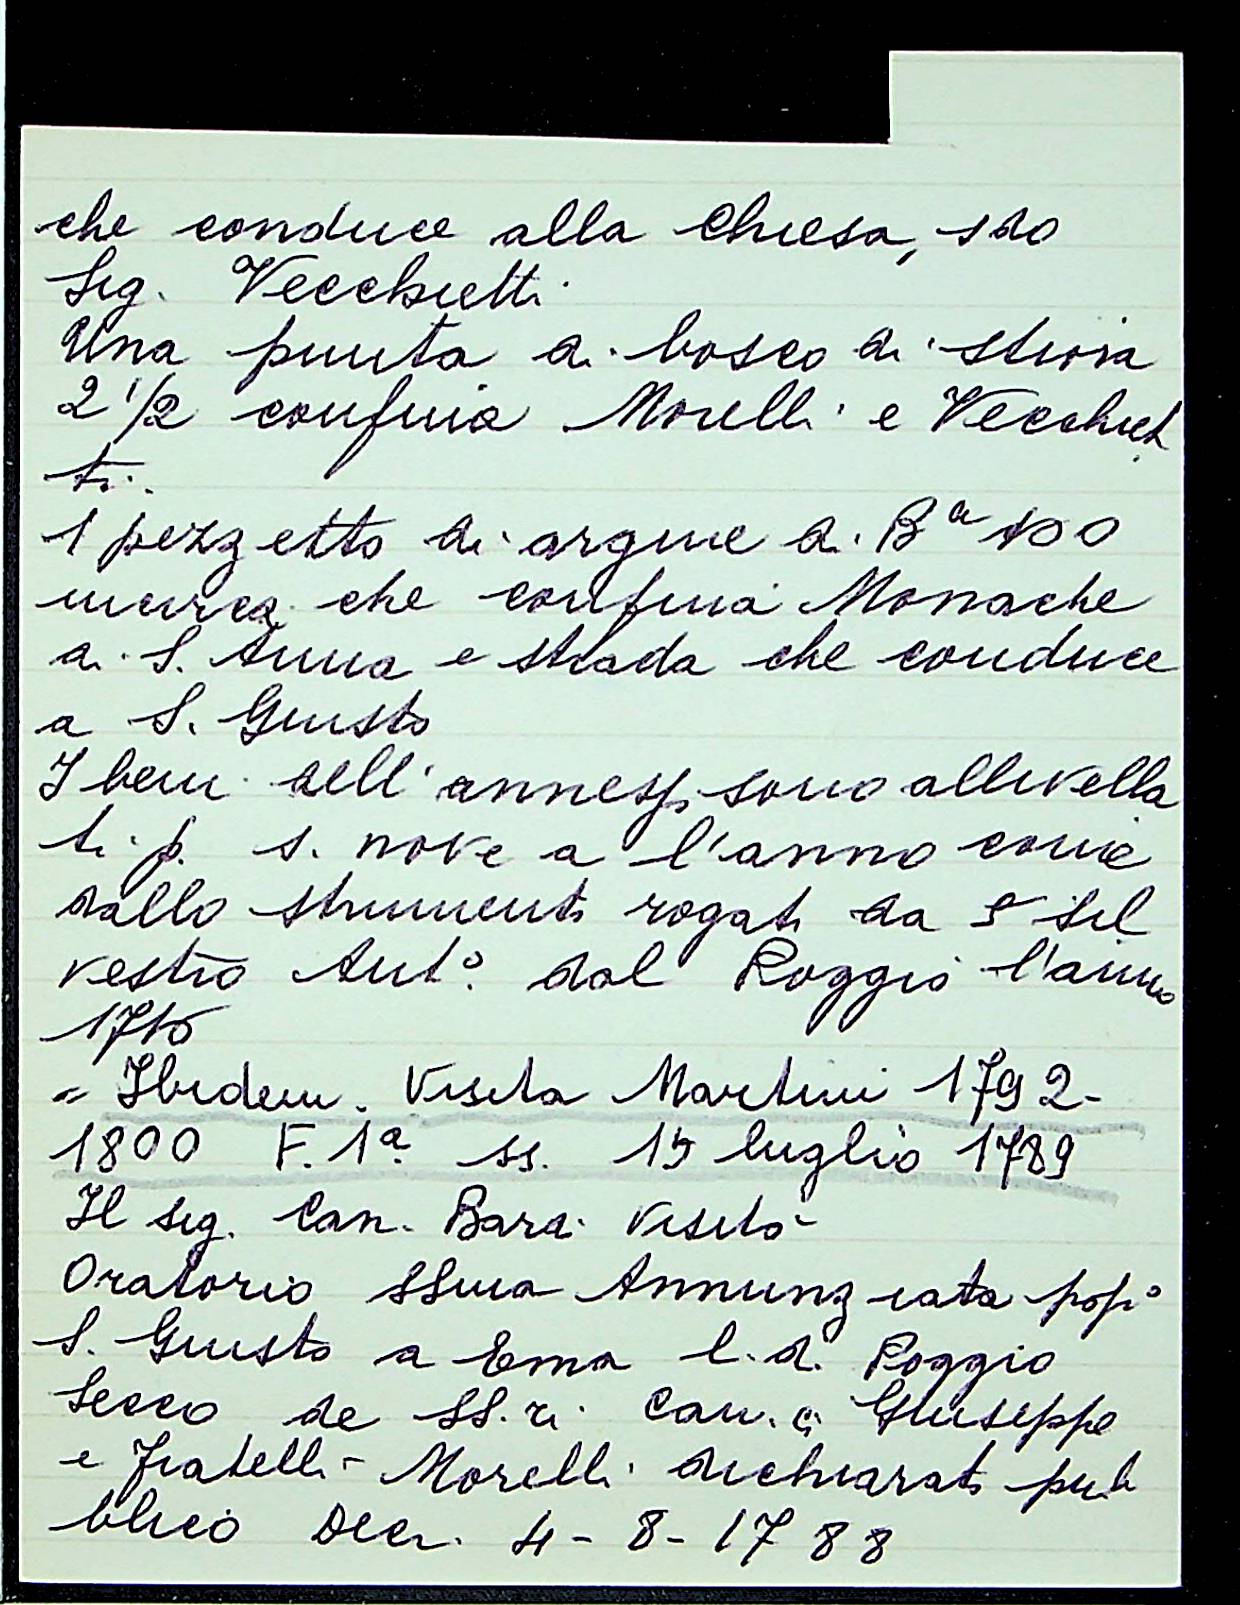 che conduce alla Chiesa, 3zo
Sig. Vecchietti
Una punta di bosco di stiora
2 1/2 confina Morelli e Vecchiet
ti.
1 pezzetto di argine di Ba 100
incirca che confina Monache
di S. Anna e strada che conduce
a S. Giusto
I beni dell'anness. sono allivella
ti p. s. nove a l'anno come
dallo strumenti rogati da S Sil
vestro Ant.o dal Poggio l'anno
1716
= Ibidem. Visita Martini 1792-
1800 F. 1a. ss. 15 luglio 1789
Il sig. Can. Bardi visitò
Oratorio SSma Annunziata pop.o
S. Giusto a Ema l.d. Poggio
Secco de SS.ri Can.ci Giuseppe
e fratelli Morelli dichiarato pub
blico Decr. 4-8-1788